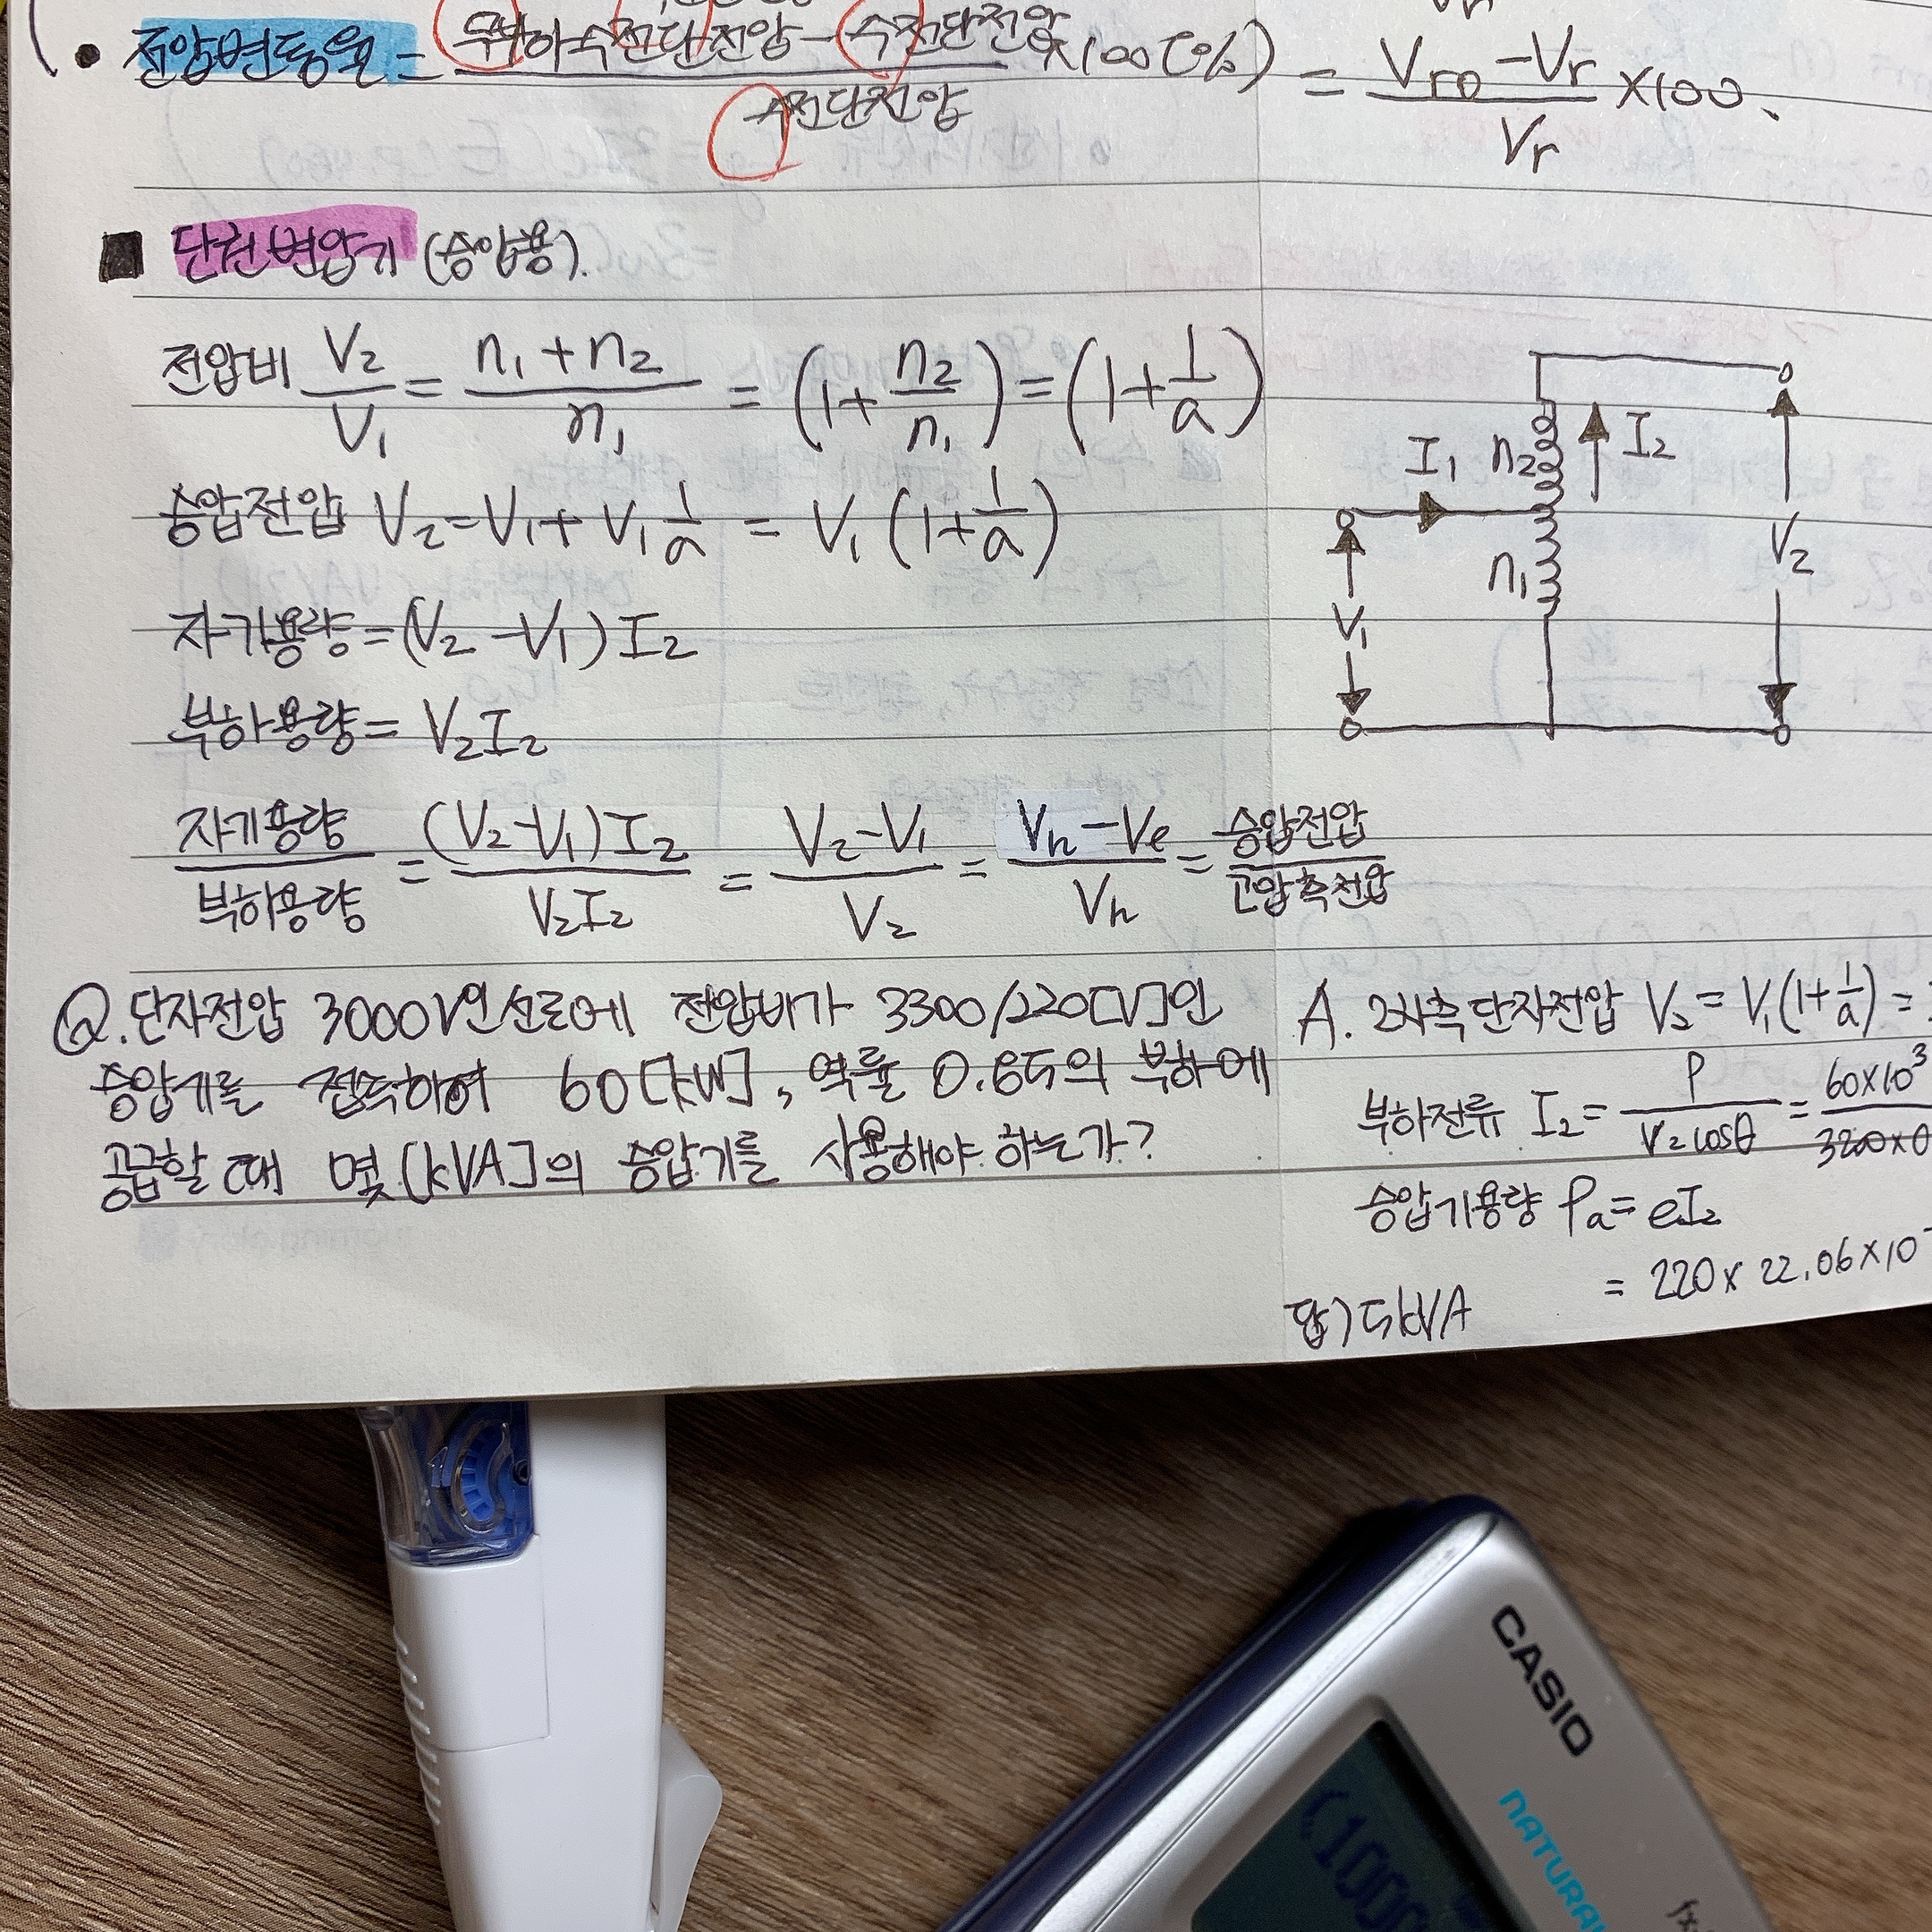 • 전압변동율 = 무부하수전단전압 - 수전단전압 / 수전단전압 ×100 [%] = Vro - Vr / Vr ×100
■ 단권변압기 (승압용).
전압비 V2/V1 = n1+n2/n1 = (1+n2/n1) = (1+1/a)
승압전압 V2 = V1 + V1 1/a = V1 (1+1/a)
자기용량 = (V2-V1) I2
부하용량 = V2I2
자기용량/부하용량 = (V2-V1)I2 / V2I2 = V2-V1 / V2 = Vh-Ve / Vh = 승압전압/고압측전압
I1 n2 I2
n1
V1 V2
Q. 단자전압 3000V인 선로에 전압비가 3300/220[V]인
승압기를 접속하여 60[kW], 역률 0.85의 부하에
공급할 때 몇 [kVA]의 승압기를 사용해야 하는가?
A. 2차측 단자전압 V2 = V1(1+1/a) =
부하전류 I2 = P / V2cosθ = 60×10³ / 3200×0
승압기용량 Pa = eI2
= 220 × 22.06×10
답) 5kVA
CASIO
NATURAL